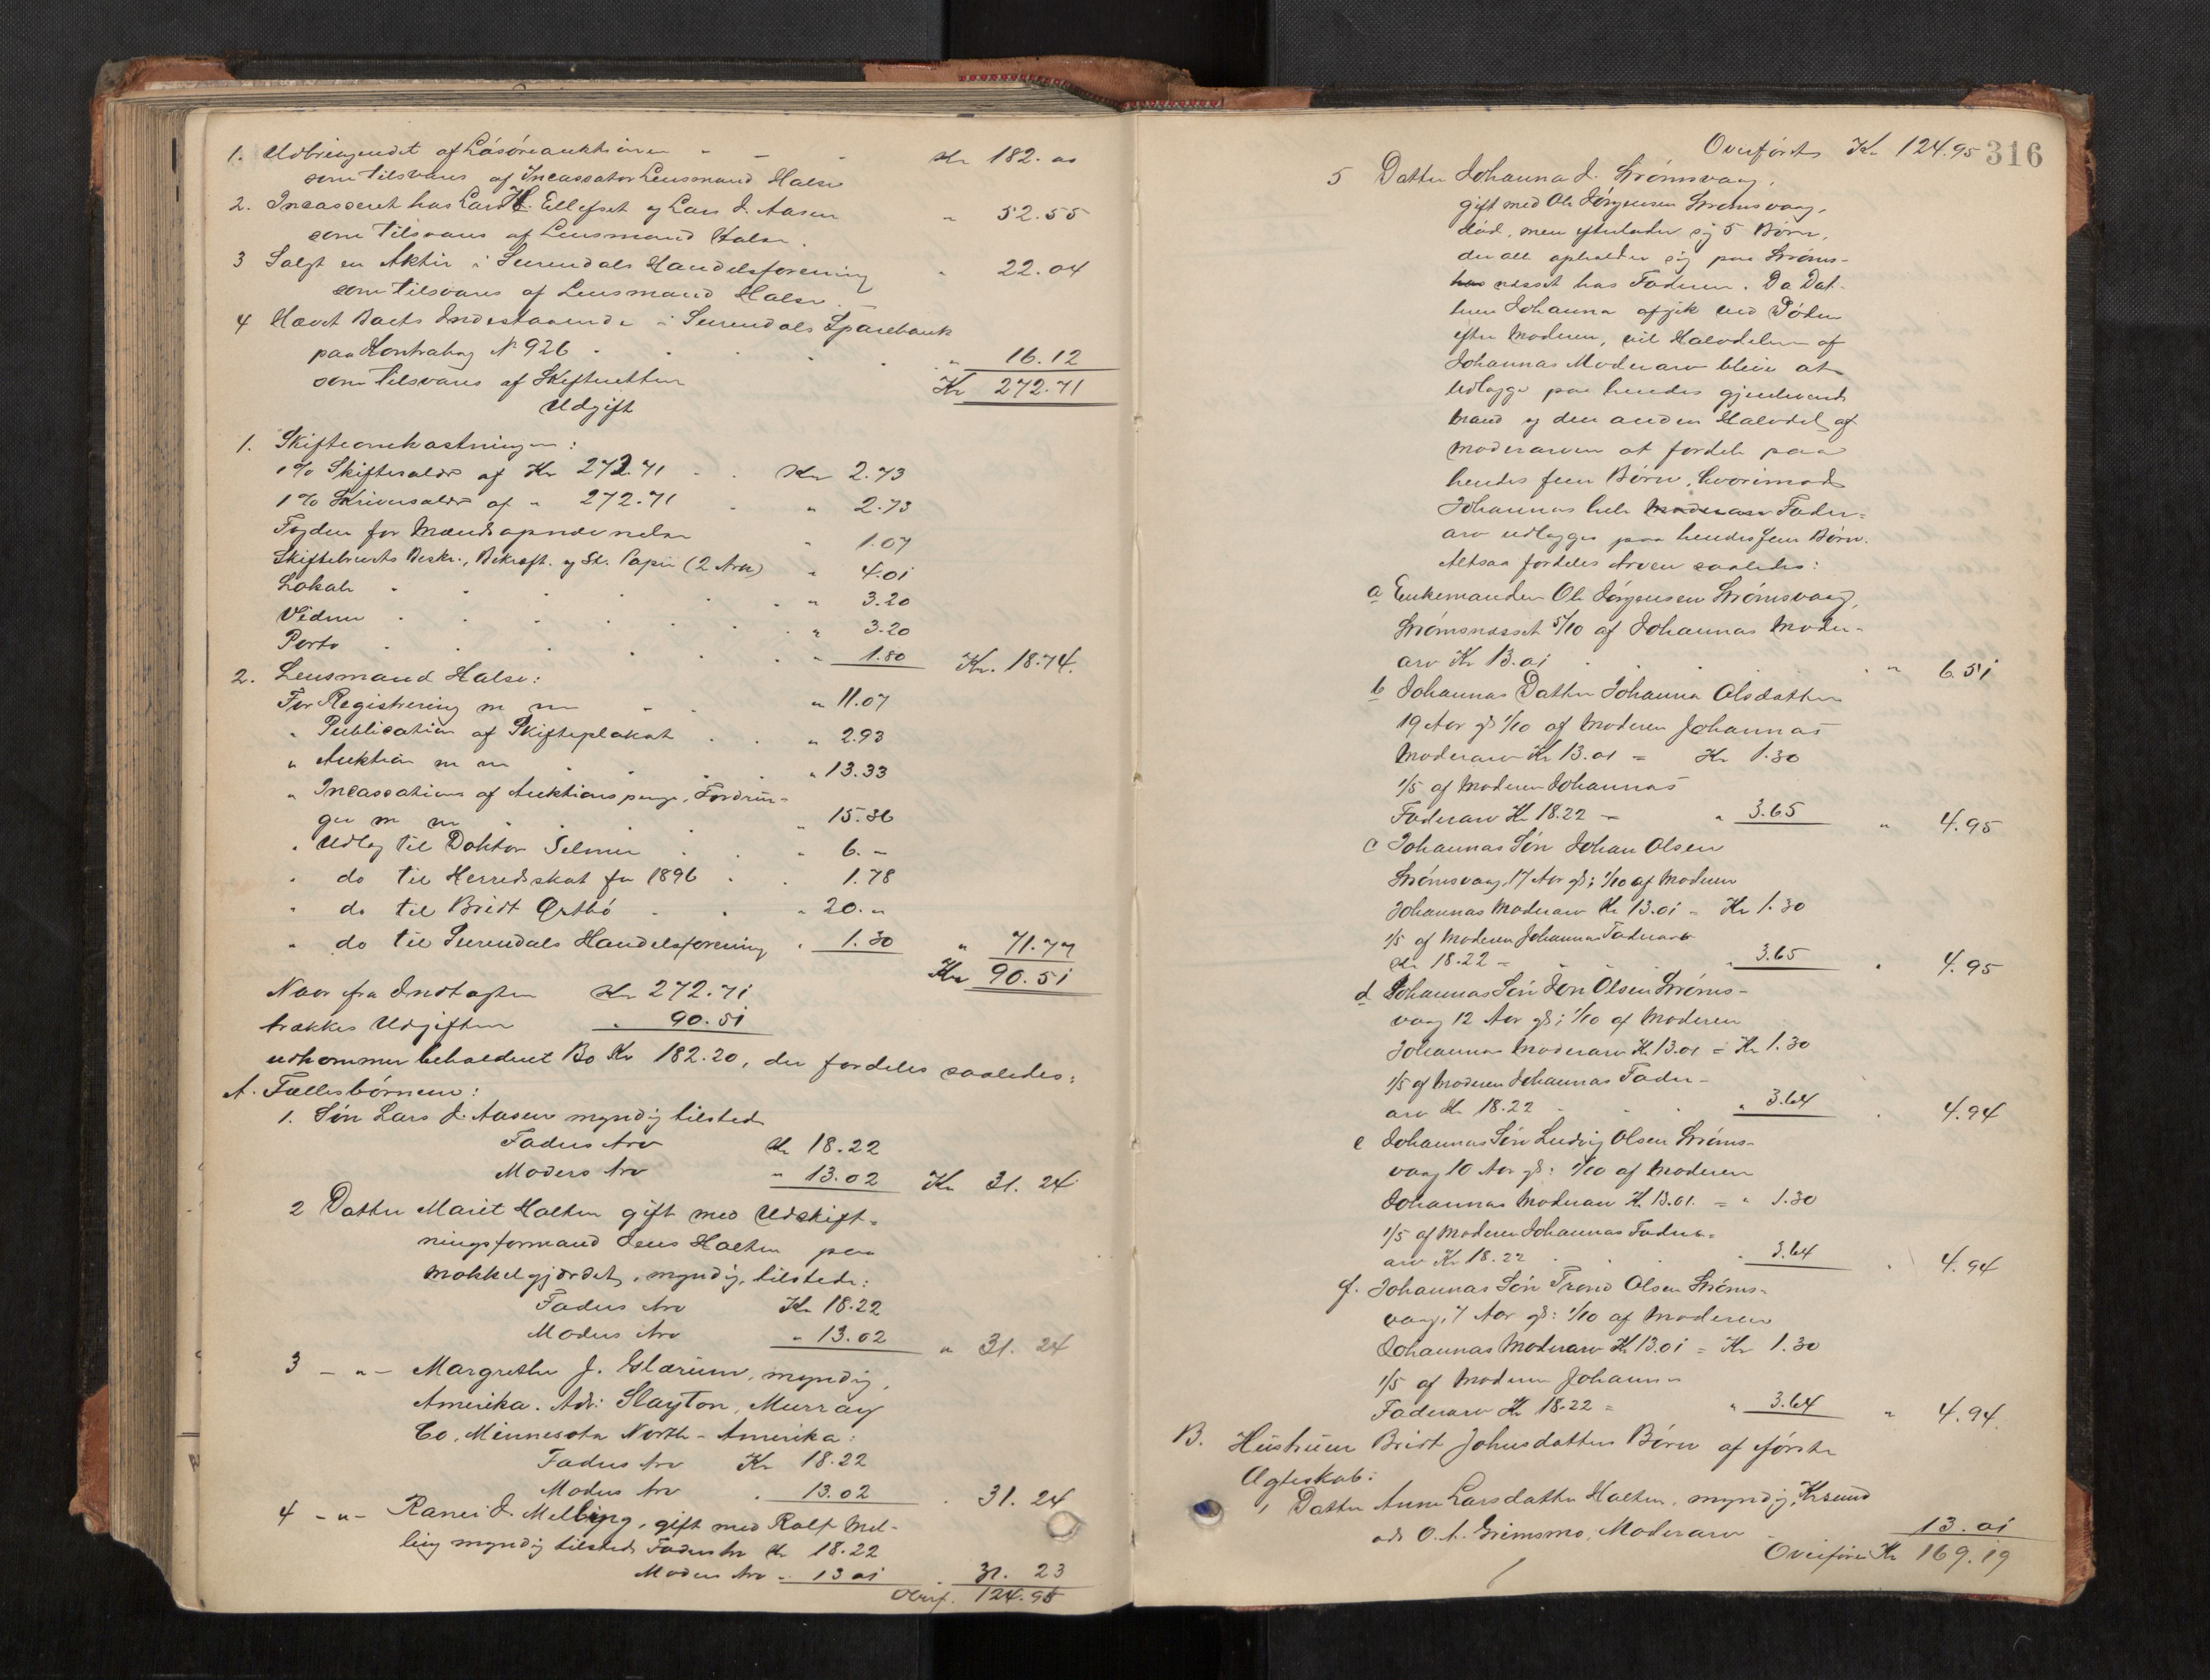 1. Udbringendet af Løsøreauktionen - - - Kr 182.00
som tilsvares af Incassator Lensmand Halse
2. Incasseret hos Lars H. Ellefset og Lars J. Aasen " 52.55
som tilsvares af Lensmand Halse.
3 Solgt en Aktie i Surendals Handelsforening " 22.04
som tilsvares af Lensmand Halse.
4 Hævet Boets Indestaaende i Surendals Sparebank
paa Kontrabog No 926 . . . . " 16.12
som tilsvares af Skifteretten Kr 272.71
Udgift
1. Skifteomkostninger:
1% Skiftesalær af Kr 272.71 . . Kr 2.73
1% Skriversalær af " 272.71 " 2.73
Fogden for Mandsopnævnelse " 1.07
Skiftebrevets Beskr., Bekræft. og St. Papir (2 Ark) " 4.01
Lokale . . . . . . " 3.20
Vidner . . . . . . " 3.20
Porto . . . . . . " 1.80 Kr. 18.74.
2. Lensmand Halse:
For Registrering m m - - " 11.07
" Publication af Skifteplakat . . " 2.93
" Auktion m m . . . . " 13.33
" Incassation af Auktionspenge, Fordrin=
ger m m . . " 15.36
" Udlæg til Doktor Selmer . . " 6. -
" do til Herredsskat for 1896 . . 1.78
" do til Bridt Qrthø . . " 20. "
" do til Surendals Handelsforening . 1.30 " 71.77
Kr 90.51
Naar fra Indtægten Kr 272.71
trækkes Udgiften " 90.51
udkommer beholdent Bo Kr 182.20, der fordeles saaledes:
A. Fællesbørnene:
1. Søn Lars J. Aasen myndig tilstede
Faders Arv Kr 18.22
Moders Arv " 13.02 Kr 31.24
2 Datter Marit Holten gift med Udskift=
ningsformand Jens Holten paa
Mokkelgjærdet, myndig, tilstede:
Faders Arv Kr 18.22
Moders Arv " 13.02 " 31.24
3 - " - Margrethe J. Glærum, myndig,
Amerika. Adr: Slayton, Murray
Co. Minnesota North-Amerika:
Faders Arv Kr 18.22
Moders Arv " 13.02 " 31.24
4 - " - Ranei J. Melling, gift med Rolf Mel-
ling myndig tilstede Faders Arv Kr 18.22
Moders Arv " 13.01 " 31.23
Overf. 124.95
Overførtes Kr 124.95 316
5 Datter Johanna J. Strømsvaag,
gift med Ole Jørgensen Strømsvaag,
død, men efterlader sig 5 Børn,
der alle opholder sig paa Strøms-
hos næsset hos Faderen. Da Dat-
teren Johanna afgik ved Døden
efter Moderen, vil Halvdelen af
Johannas Moderarv blive at
udlægge paa hendes gjenlevende
Mand og den anden Halvdel af
Moderarven at fordele paa
hendes fem Børn, hvorimod
Johannas hele Moderarv Fader=
arv udlægges paa hendes fem Børn.
Altsaa fordeles Arven saaledes:
a Enkemanden Ole Jørgensen Strømsvaag,
Strømsnæsset 5/10 af Johannas Moder-
arv Kr 13.01 . . . . " 6.51
b Johannas Datter Johanna Olsdatter
19 Aar gl 1/10 af Moderen Johannas
Moderarv Kr 13.01 = Kr 1.30
1/5 af Moderen Johannas
Faderarv Kr 18.22 = " 3.65 " 4.95
c Johannas Søn Johan Olsen
Strømsvaag, 17 Aar gl; 1/10 af Moderen
Johannas Moderarv Kr 13.01 = Kr 1.30
1/5 af Moderen Johannas Faderarv
Kr 18.22 = - - " 3.65 " 4.95
d Johannas Søn Jon Olsen Strøms-
vaag 12 Aar gl; 1/10 af Moderen
Johannas Moderarv Kr 13.01 = Kr 1.30
1/5 af Moderen Johannas Fader-
arv Kr 18.22 - - - " 3.64 " 4.94
e Johannas Søn Ludvig Olsen Strøms-
vaag 10 Aar gl: 1/10 af Moderen
Johannas Moderarv Kr 13.01. = " 1.30
1/5 af Moderen Johannas Fader=
arv Kr 18.22 . . . " 3.64 " 4.94
f. Johannas Søn Trond Olsen Strøms-
vaag, 7 Aar gl: 1/10 af Moderen
Johannas Moderarv Kr 13.01 = Kr 1.30
1/5 af Moderen Johannas
Faderarv Kr 18.22 = " 3.64 " 4.94.
B. Hustruen Bridt Johnsdatters Børn af første
Ægteskab:
1 Datter Anne Larsdatter Holten, myndig, Krsund
adr O. A. Grimsmo, Moderarv - 13.01
Overføres Kr 169.19